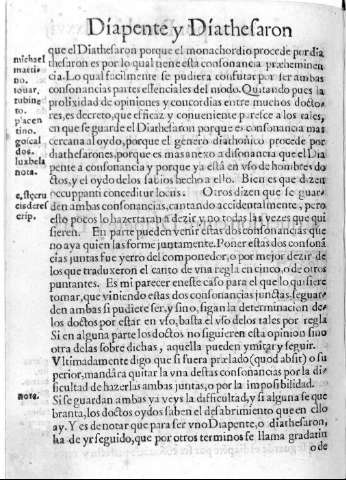 Diapente y Diathesaron
que el Diathesaron porque el monachordio procede por dia
thesaron es por lo qual tiene esta consonancia præheminen
cia. Lo qual facilmente se pudiera confutar por ser ambas
consonancias partes essenciales del modo. Quitando pues la
prolixidad de opiniones y concordias entre muchos docto-
res, es decreto, que efficaz y conueniente paresce a los tales,
en que se guarde el Diathesaron porque es consonancia mas
cercana al oydo, porque el genero diathonico procede por
diathesarones, porque es mas anexo a disonancia que el Dia
pente a consonancia y porque ya està en vso de hombres do
ctos, y el oydo delos sabios hecho a ello. Bien es que dizen
reccuppanti conceditur locus. Otros dizen que se guar
den ambas consonancias, cantando accidentalmente, pero
esto pocos lo hazertaran a dezir y no todas las vezes que qui
sieren. En parte pueden venir estas dos consonancias que
no aya quien las forme juntamente. Poner estas dos consonã
cias juntas fue yerro del componedor, o por mejor dezir de
los que traduxeron el canto de vna regla en cinco, o de otros
puntantes. Es mi parecer en este caso para el que lo quisiere
tomar, que viniendo estas dos consonancias junctas, se guar
den ambas si pudiere ser, y sino, sigan la determinacion de
los doctos por estar en vso, basta el vso delos tales por regla
Si en alguna parte los doctos no siguieren esta opinion sino
otra delas sobre dichas, aquella pueden ymitar y seguir.
Vltimadamente digo que si fuera prælado (quod absit) o su
perior, mandàra quitar la vna destas consonancias por la di
ficultad de hazerlas ambas juntas, o por la imposibilidad.
Si se guardan ambas ya veys la difficultad, y si alguna se que
branta, los doctos oydos saben el desabrimiento que en ello
ay. Y es de notar que para ser vno Diapente, o diathesaron,
ha de yr seguido, que por otros terminos se llama gradatin
o de
michael
marti-
no.
touar.
tubing
to.
placen
tino.
goiscal
dos.
luxbela
nota.
crip.
nota.